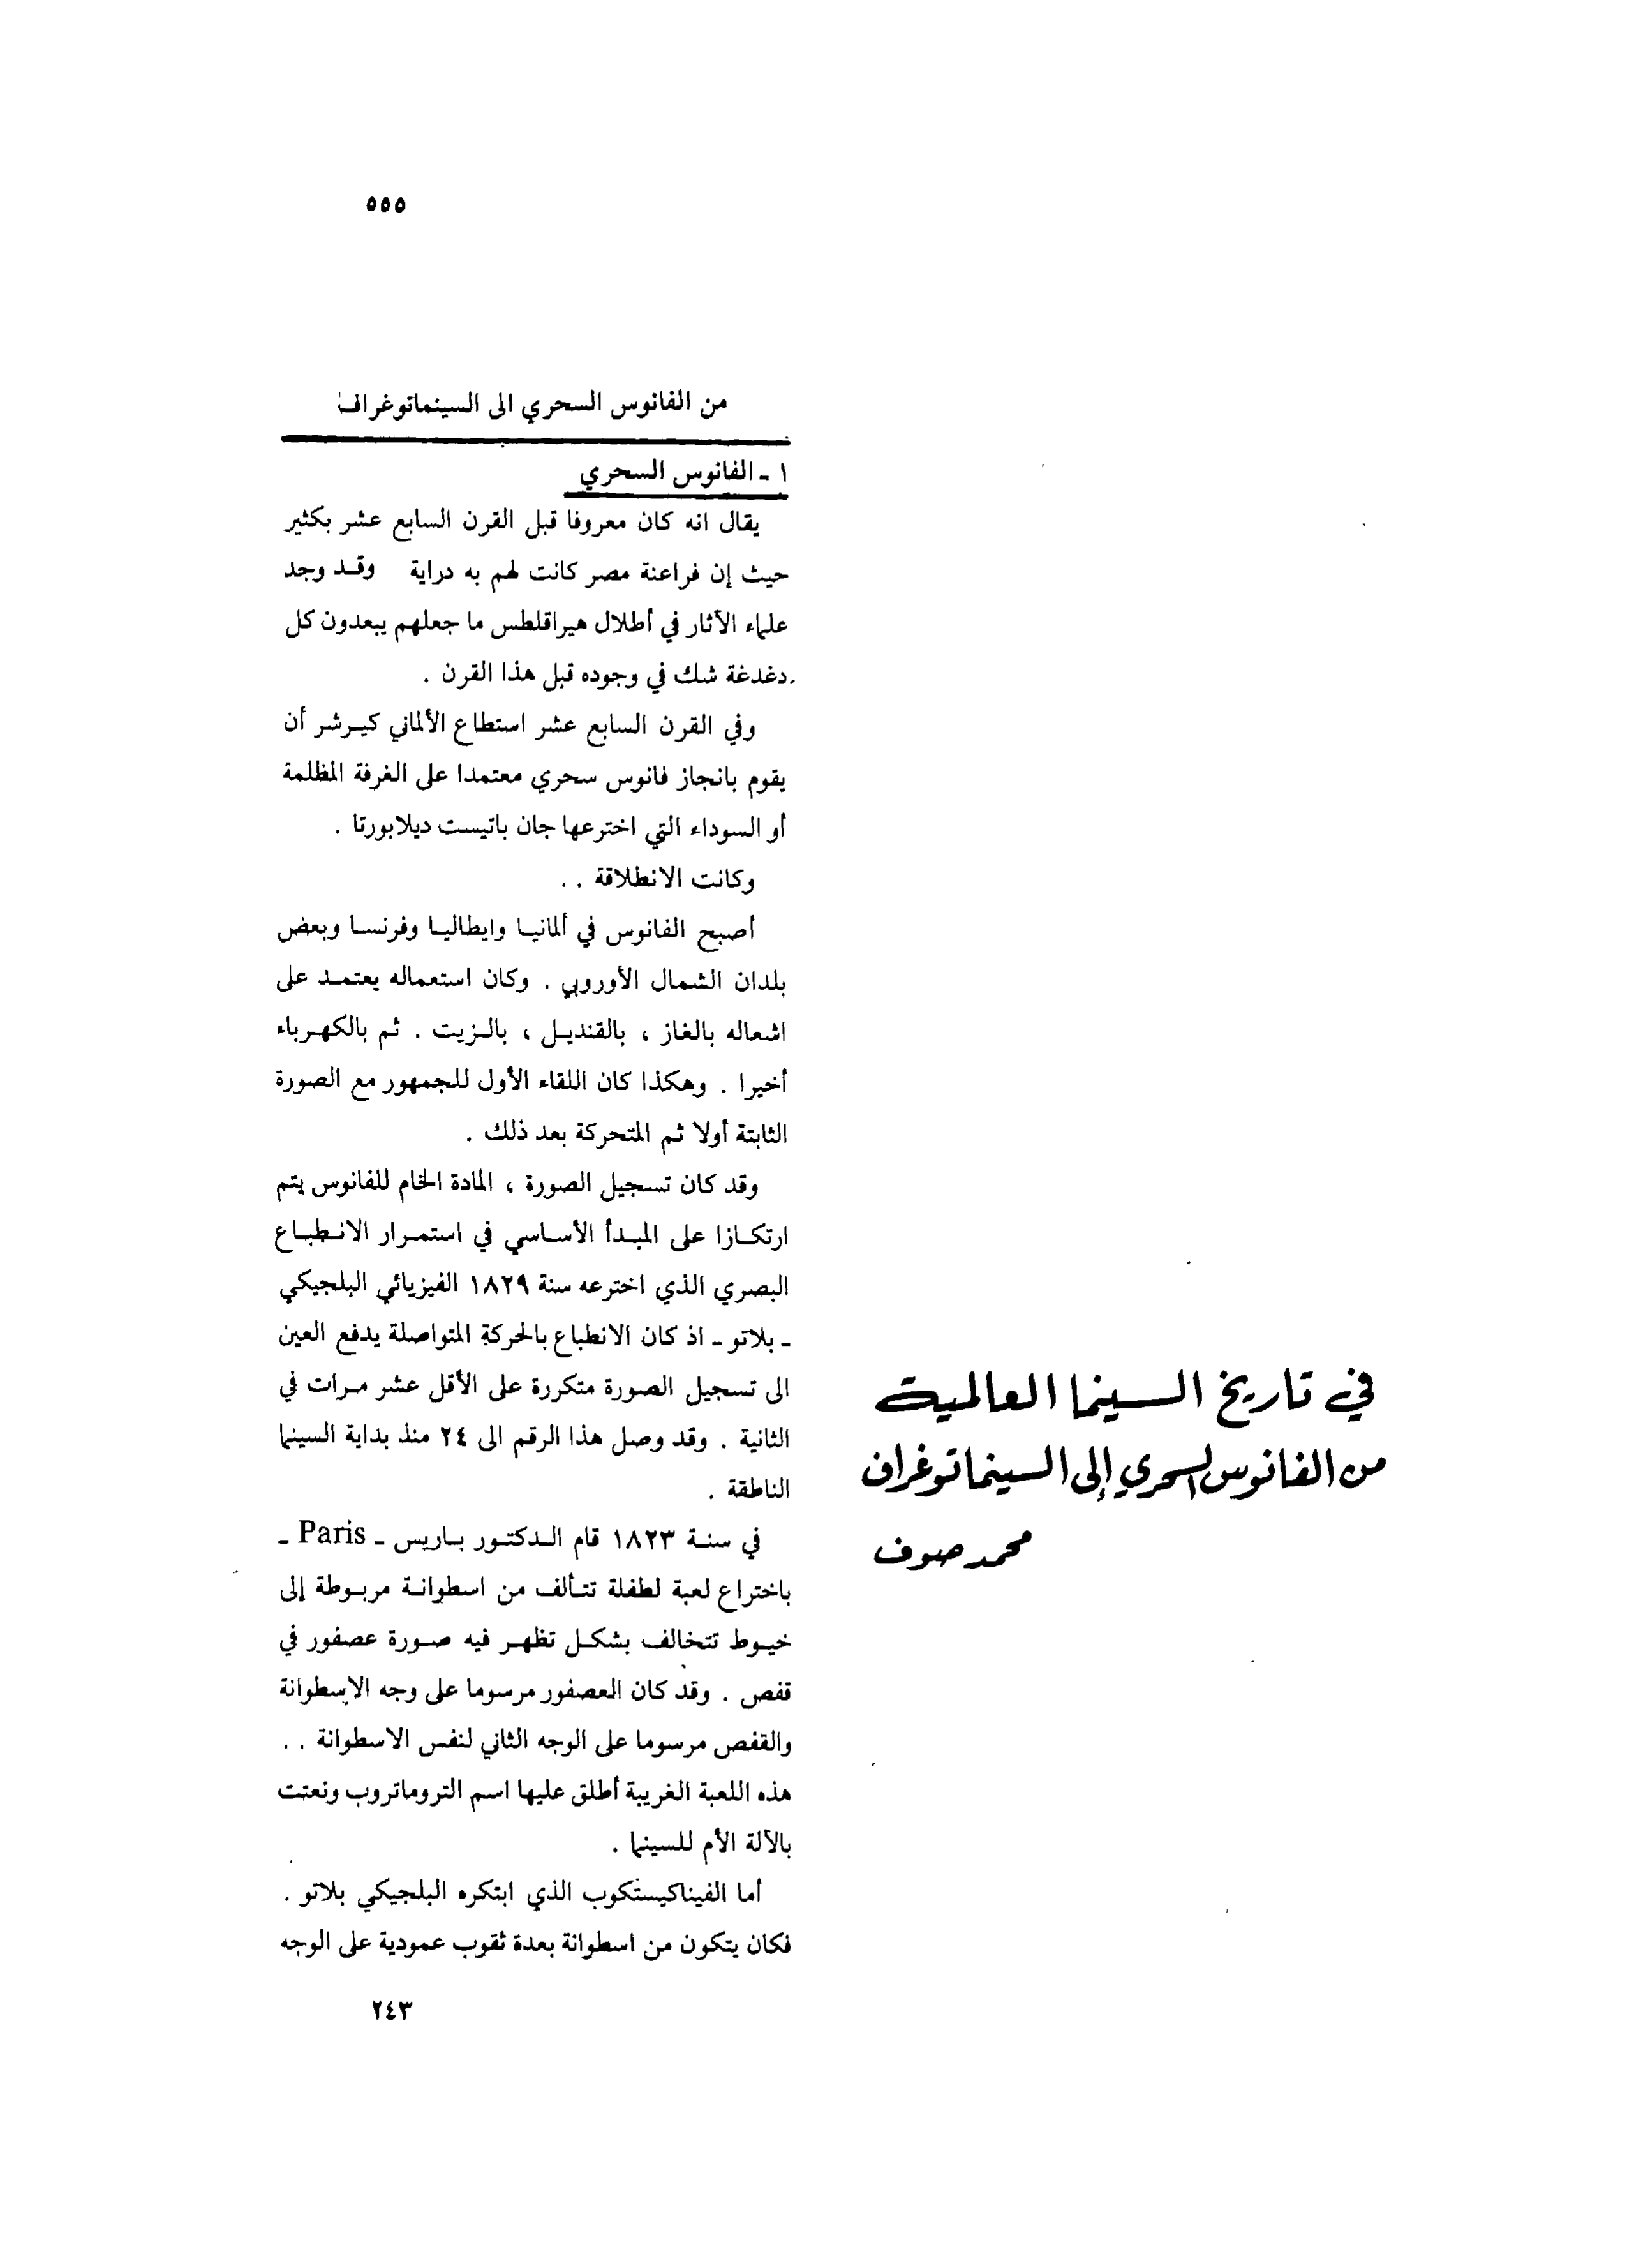 ٥٥٥
في تاريخ السينما العالمية
من الفانوس السحري إلى السينماتوغراف
محمد صوف
من الفانوس السحري الى السينماتوغراف
١ - الفانوس السحري
يقال انه كان معروفا قبل القرن السابع عشر بكثير
حيث إن فراعنة مصر كانت لهم به دراية وقد وجد
علماء الآثار في أطلال هيراقلطس ما جعلهم يبعدون كل
دغدغة شك في وجوده قبل هذا القرن .
وفي القرن السابع عشر استطاع الألماني كيرشر أن
يقوم بانجاز فانوس سحري معتمدا على الغرفة المظلمة
أو السوداء التي اخترعها جان باتيست ديلابورتا .
وكانت الانطلاقة . .
أصبح الفانوس في ألمانيا وايطاليا وفرنسا وبعض
بلدان الشمال الأوروبي . وكان استعماله يعتمد على
اشعاله بالغاز ، بالقنديل ، بالزيت . ثم بالكهرباء
أخيرا . وهكذا كان اللقاء الأول للجمهور مع الصورة
الثابتة أولا ثم المتحركة بعد ذلك .
وقد كان تسجيل الصورة ، المادة الخام للفانوس يتم
ارتكازا على المبدأ الأساسي في استمرار الانطباع
البصري الذي اخترعه سنة ١٨٢٩ الفيزيائي البلجيكي
- بلاتو - اذ كان الانطباع بالحركة المتواصلة يدفع العين
الى تسجيل الصورة متكررة على الأقل عشر مرات في
الثانية . وقد وصل هذا الرقم الى ٢٤ منذ بداية السينما
الناطقة .
في سنة ١٨٢٣ قام الدكتور باريس - Paris -
باختراع لعبة لطفلة تتألف من اسطوانة مربوطة إلى
خيوط تتخالف بشكل تظهر فيه صورة عصفور في
قفص . وقد كان العصفور مرسوما على وجه الاسطوانة
والقفص مرسوما على الوجه الثاني لنفس الاسطوانة . .
هذه اللعبة الغريبة أطلق عليها اسم التروماتروب ونعتت
بالآلة الأم للسينما .
أما الفيناكيستكوب الذي ابتكره البلجيكي بلاتو .
فكان يتكون من اسطوانة بعدة ثقوب عمودية على الوجه
٢٤٣